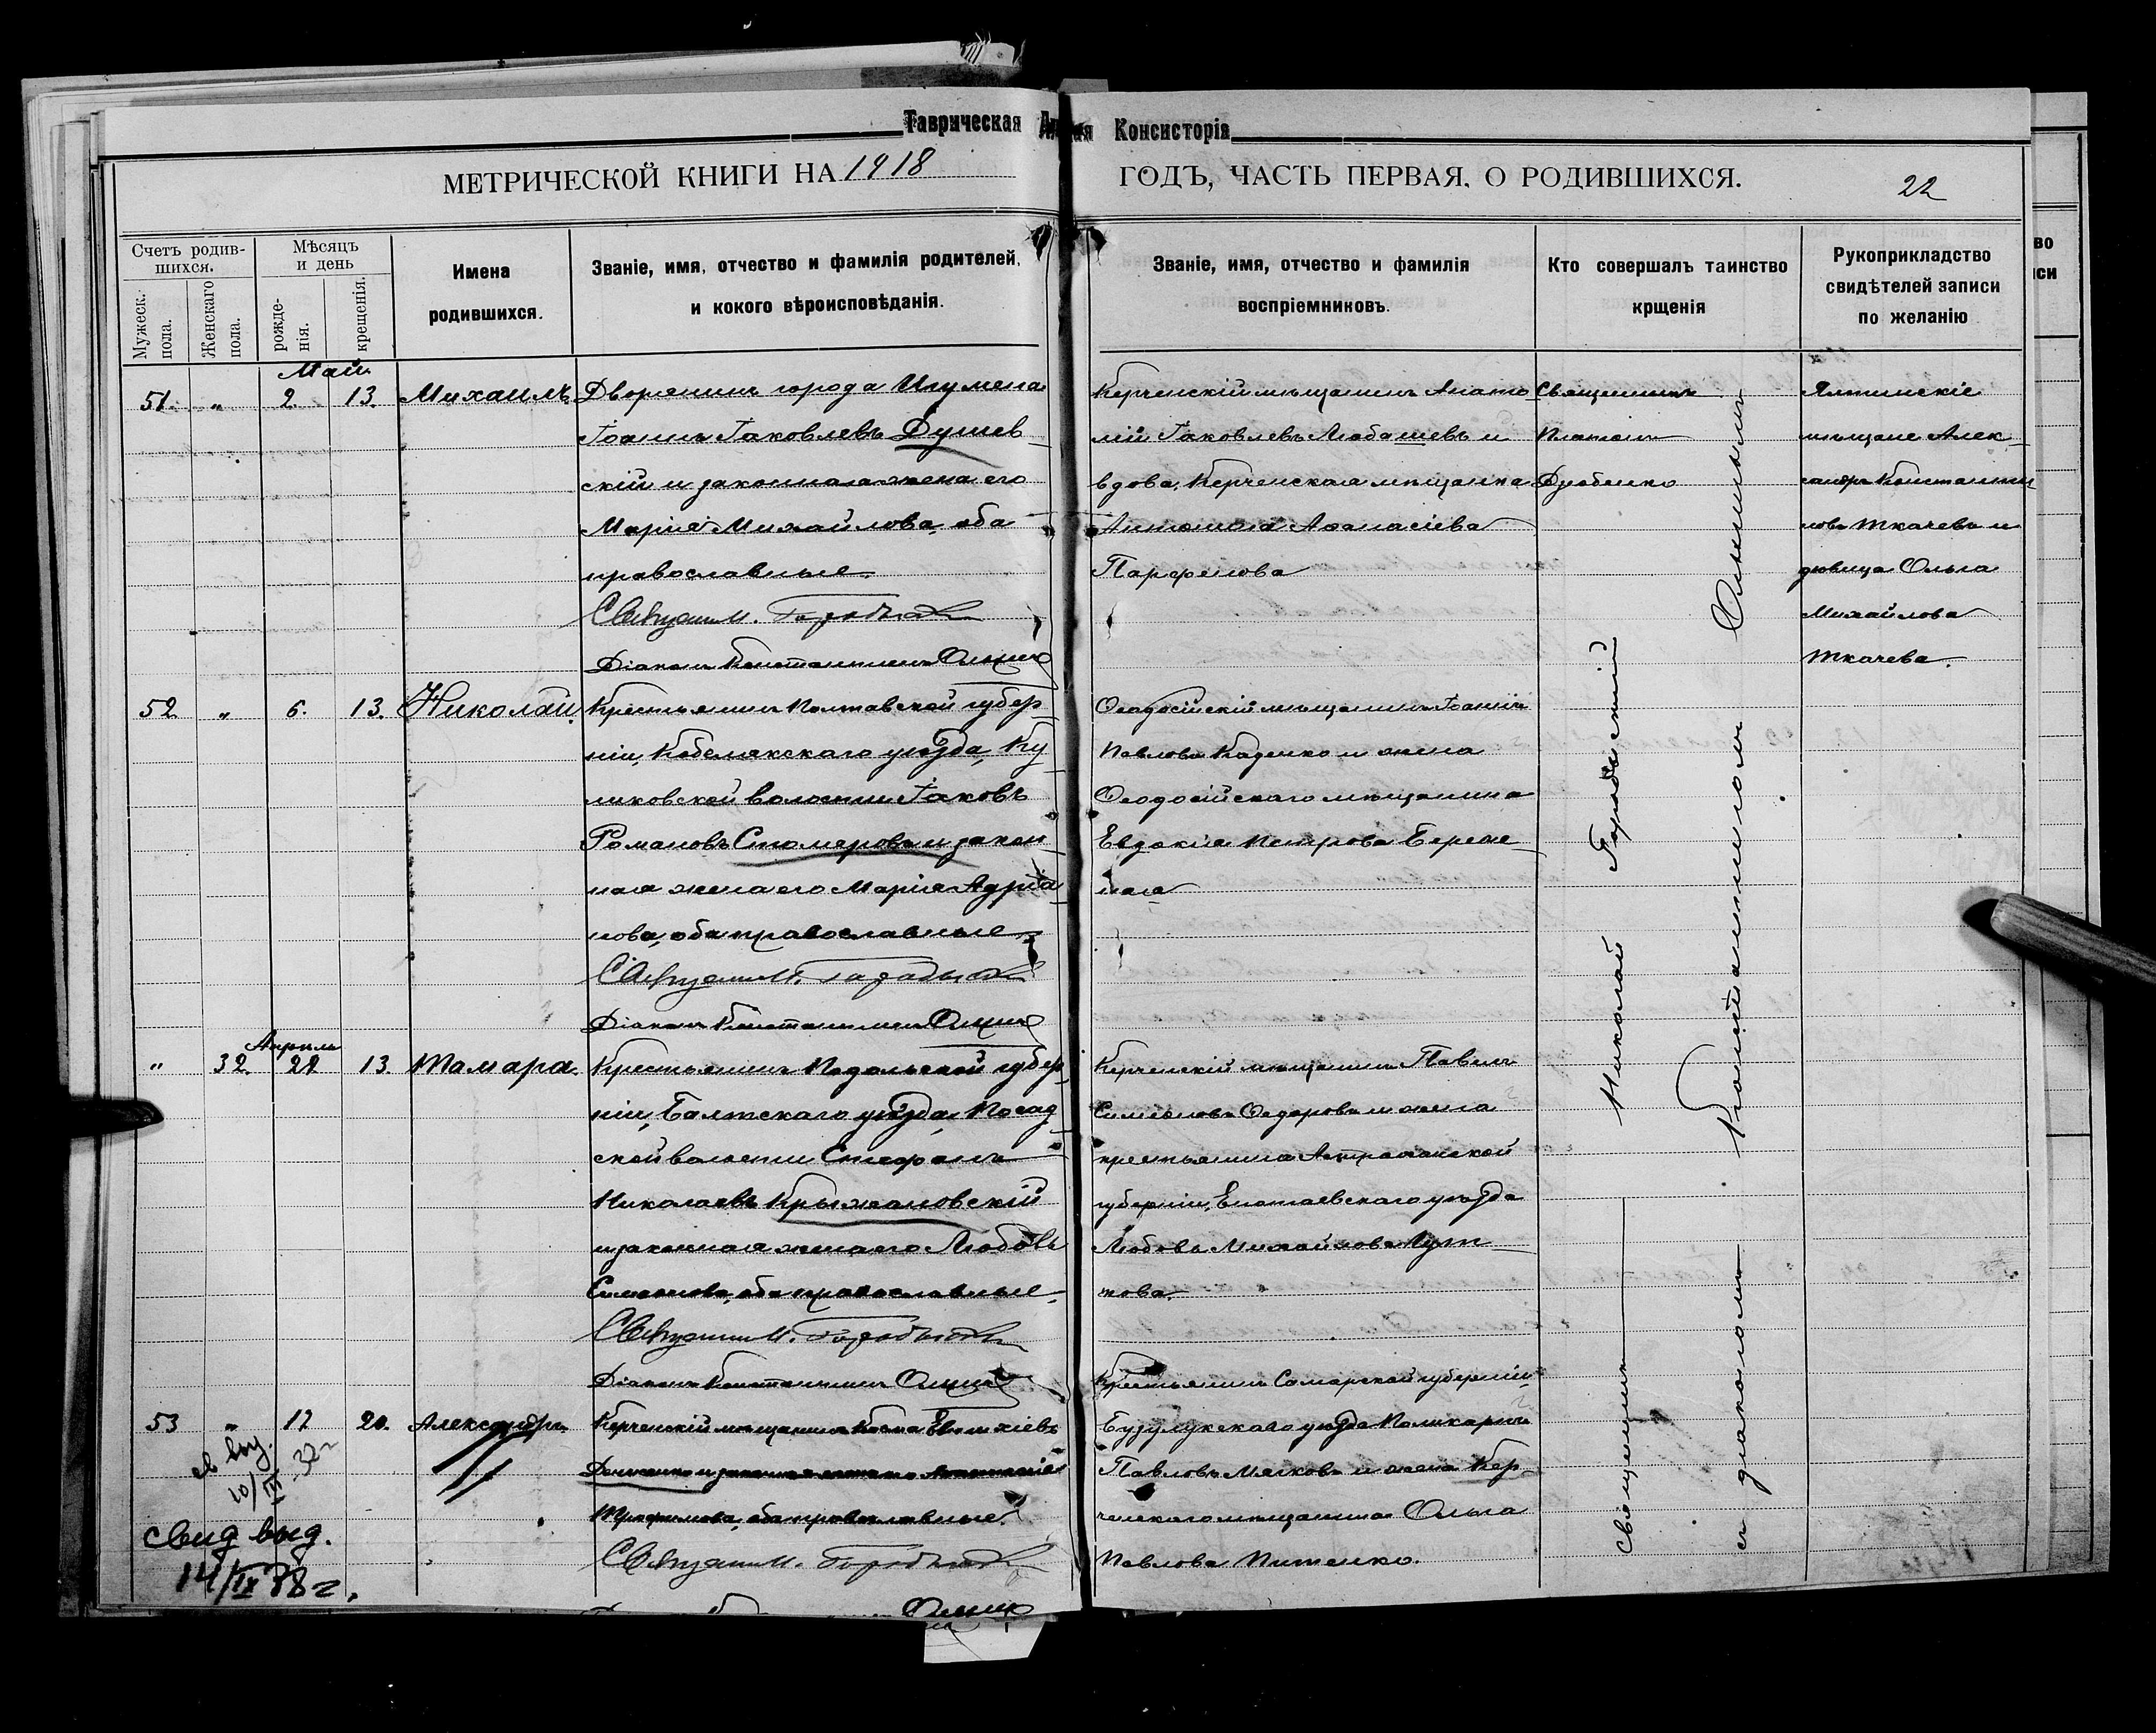 Таврическая Консисторія
МЕТРИЧЕСКОЙ КНИГИ НА 1918 ГОДЪ, ЧАСТЬ ПЕРВАЯ, О РОДИВШИХСЯ.
22
Счетъ родив-
шихся.
Мужеск.
пола.
Женскаго
пола.
Мѣсяцъ
и день
рожде-
нія.
крещенія.
Имена
родившихся.
Званіе, имя, отчество и фамилія родителей,
и кокого вѣроисповѣданія.
Званіе, имя, отчество и фамилія
воспріемниковъ.
Кто совершалъ таинство
крщенія
Рукоприкладство
свидѣтелей записи
по желанію
во
си
Май
51. " 2 13. Михаилъ
Дворянинъ города Игумена
Іоаннъ Іаковлевъ Душев-
скій и законная жена его
Марія Михайлова, оба
православные.
Священн.
Діаконъ Константинъ
Керченскій мѣщанинъ Анато
лій Іаковлевъ Любашевъ и
вдова, Керченская мѣщанка
Антонина Аѳанасіева
Парфенова
Священникъ
Платонъ
Дзюбенко
Ялтинскіе
мѣщане Алек-
сандръ Константи
новъ Ткачевъ и
дѣвица Ольга
Михайлова
Ткачева.
52 " 6. 13. Николай.
Крестьянинъ Полтавской губер-
ніи, Кобелякскаго уѣзда, Ку
ликовской волости Іаковъ
Романовъ Стомеровъ и закон-
ная жена его Марія Адріа-
нова, оба православные
Священн.
Діаконъ Константинъ
Ѳеодосійскій мѣщанинъ Іоаннъ
Павловъ Каденко и жена
Ѳеодосійскаго мѣщанина
Евдокія Петрова Береж-
ная
Апрѣль
" 32. 21 13 Тамара.
Крестьянинъ Подольской губер-
ніи, Балтскаго уѣзда, Посад-
ской волости Стефанъ
Николаевъ Крыжановскій
и законная жена его Любовь
Симеонова, оба православные.
Священн.
Діаконъ Константинъ
Керченскій мѣщанинъ Павелъ
Симеоновъ Ѳедоровъ и жена
крестьянина Астраханской
губерніи, Енотаевскаго уѣзда
Любовь Михайлова
нова.
53 " 12 20. Александръ.
Керченскій мѣщанинъ Косма Евтихіевъ
и законная жена его
оба православные.
Священн.
Крестьянинъ Самарской губерніи
Бузулукскаго уѣзда Поликарпъ
Павловъ Мячковъ и жена Кер-
ченскаго мѣщанина Ольга
Павлова Питенко.
10/III-32 г
свид выд.
14/IX 88 г.
Священникъ Николай
съ діакономъ Константиномъ